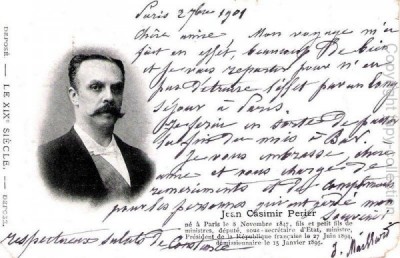 Paris 2 7bre 1901
Chère amie, Mon voyage m'a
fait en effet, beaucoup de bien
et je vais repartir pour n'en
pas détruire l'effet par un long
séjour à Paris.
Je ferai en sorte de passer
du mois à Bar.
Je vous embrasse chère
amie et vous charge de
remerciements et des compliments
pour les personnes qui ont gardé mon
souvenir
J. Maillard
respectueux saluts de Constance
DÉPOSÉ. — LE XIXe SIÈCLE. — DÉPOSÉ.
Jean Casimir Perier
né à Paris le 8 Novembre 1847, fils et petit fils de
ministres, député, sous-secrétaire d'État, ministre,
Président de la République française le 27 Juin 1894,
démissionnaire le 15 Janvier 1895.